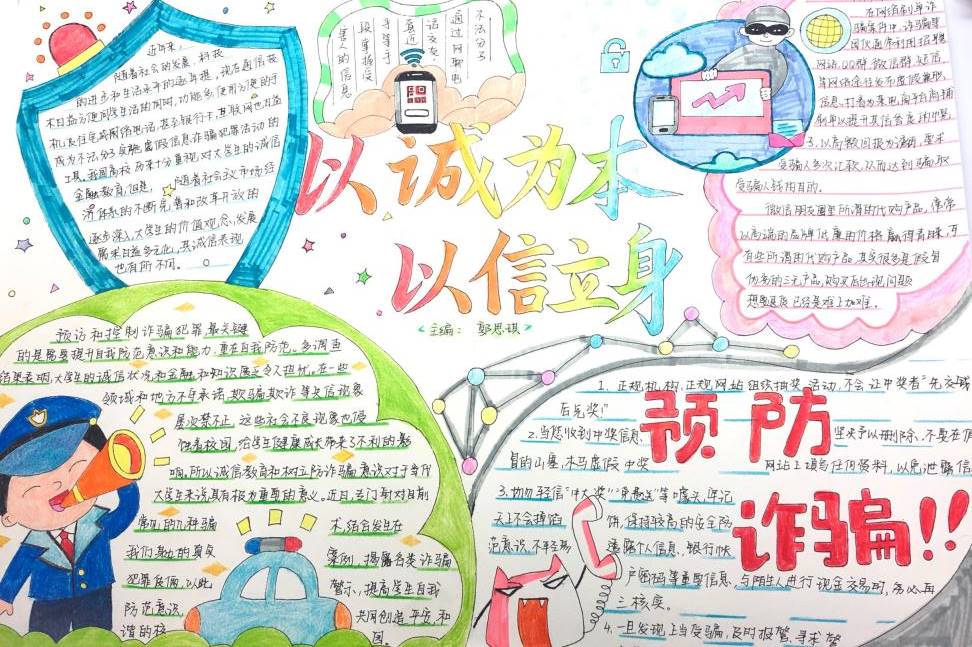 近年来,
随着社会的发展、科技
的进步和生活水平的逐年提
木日益方便同学生活的同时,功能多使用方便的手
机及住宅
成为不法分子实施虚假信息诈骗犯罪活动的
工具。我国高校历来十分重视对大学生的诚信
金融教育,但是, 随着社会议市场经
济体制的不断完善和改革开放的
逐步深入,大学生的价值观念,发展
需求日益多元化,其诚信表现
也有所不同。
不法分子
通过网络聊电
话交友,
真近
手等手
段掌握受
害人的信息
在网络刷单诈
骗案件中,诈骗等
团伙通常利用招聘
网站,QQ群,微信群,贴吧
等网络途径发布虚假兼职
信息,打着为某电商平台商铺
刷单以提升其信誉度
3.以高额回报为诱饵,要求
受骗人多次汇款,从而达到骗取
受骗人钱物目的。
微信朋友圈里所谓的代购产品,常常
以高端的品牌低廉的价格赢得青睐,可
有些所谓的代购产品,其实很多是假冒
伪劣的三无产品,购买后出现问题
想要退货已经是难上加难。
以诚为本
以信立身
<主编: 郭思琪>
预访和控制诈骗犯罪最关键
的是需要提升自我防范意识和能力,重在自我防范。多调查
结果表明,大学生的诚信状况和金融和知识属乏令人担忧。在一些
领域和地方不守承诺,欺骗欺诈等失信现象
屡次禁不止,这些社会不良现象也侵
蚀着校园,给学生健康成长带来3不利的影
响,所以诚信教育和树立防诈骗意识对于当代
大学生来说,具有极为重要的意义。近日,专门针对目前
常见的几种骗 术,结合发生在
我们身边的真实 案例,揭露各类诈骗
犯罪伎俩,以此 警示,提高学生自我
防范意识, 共同创造平安,和
谐的校 园。
1、正规机构,正规网站组织抽奖活动,不会让中奖者"先交钱
后兑奖!"
预防
2.当您收到中奖信息, 坚决予以删除、不要在假
冒的山寨,木马虚假中奖 网站上填写任何资料,以免泄露信
3.切勿轻信"中大奖""免费送"等噱头,牢记
天上不会掉馅 饼,保持较高的安全防
范意识,不轻易 透露个人信息、银行帐
户密码等重要信息、与陌生人进行现金交易时,务必再
三核实。
诈骗!!
4.一旦发现上当受骗,及时报警,寻求警